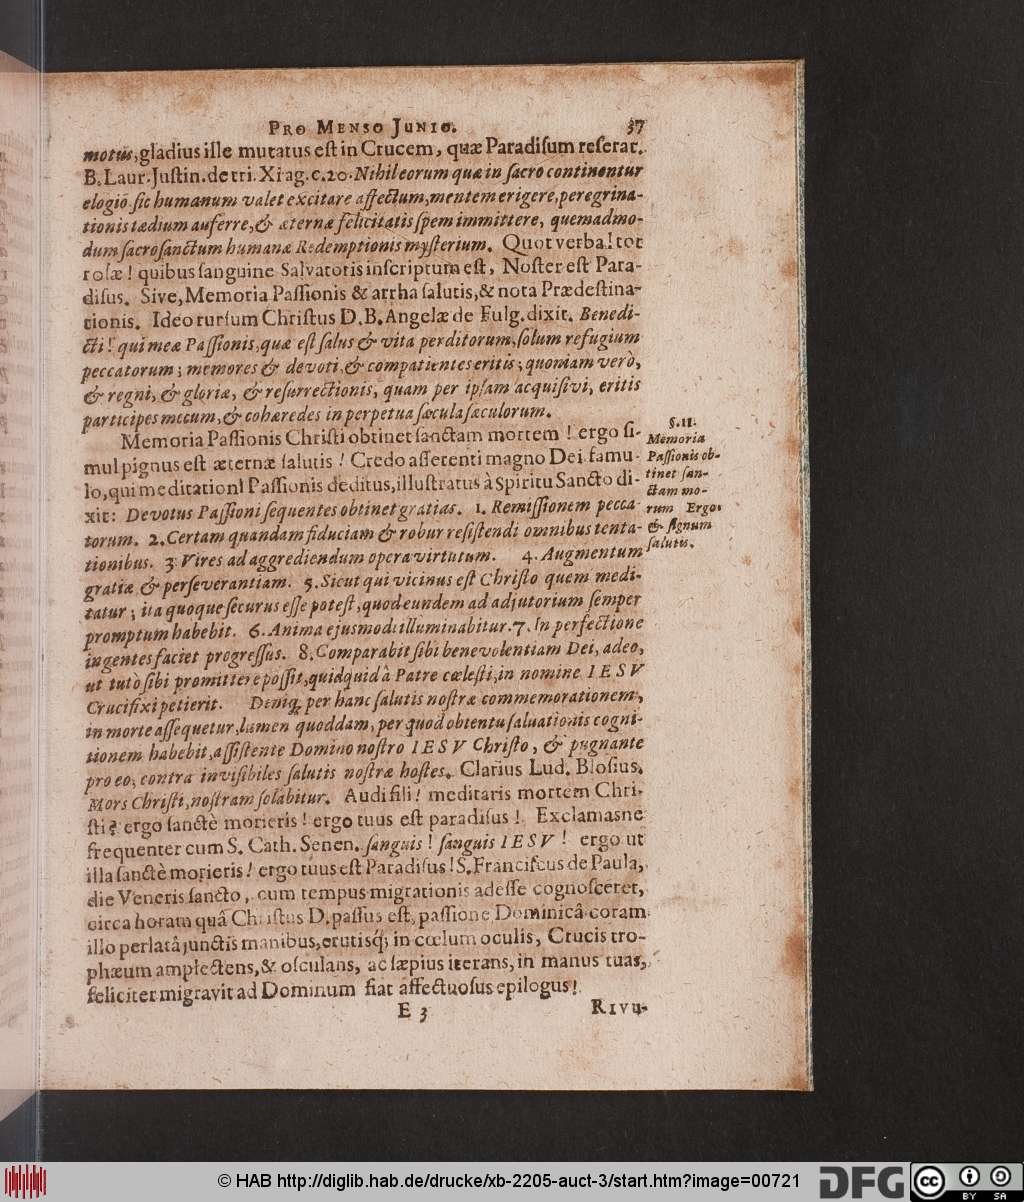 PRO MENSO JUNIO. 37
motus, gladius ille mutatus est in Crucem, quæ Paradisum reserat.
B. Laur. Justin. de tri. Xi ag. c. 20. Nihil eorum quæ in sacro continentur
elogiō sic humanum valet excitare affectum, mentem erigere, peregrina-
tionis tædium auferre, & æternæ felicitatis spem immittere, quemadmo-
dum sacrosanctum humanæ Redemptionis mysterium. Quot verba! tot
rosæ! quibus sanguine Salvatoris inscriptum est, Noster est Para-
disus. Sive, Memoria Passionis & arrha salutis, & nota Prædestina-
tionis. Ideo rursum Christus D. B. Angelæ de Fulg. dixit. Benedi-
cti! qui meæ Passionis, quæ est salus & vita perditorum, solum refugium
peccatorum; memores & devoti, & compatientes eritis; quoniam verò,
& regni, & gloriæ, & resurrectionis, quam per ipsam acquisivi, eritis
participes mecum, & cohæredes in perpetua sæcula sæculorum.
Memoria Passionis Christi obtinet sanctam mortem! ergo si-
mul pignus est æternæ salutis! Credo asserenti magno Dei famu-
lo, qui meditationi Passionis deditus, illustratus à Spiritu Sancto di-
xit: Devotus Passioni sequentes obtinet gratias. 1. Remissionem pecca-
torum. 2. Certam quandam fiduciam & robur resistendi omnibus tenta-
tionibus. 3. Vires ad aggrediendum opera virtutum. 4. Augmentum
gratiæ & perseverantiam. 5. Sicut qui vicinus est Christo quem medi-
tatur; ita quoque securus esse potest, quod eundem ad adjutorium semper
promptum habebit. 6. Anima ejusmodi illuminabitur. 7. In perfectione
ingentes faciet progressus. 8. Comparabit sibi benevolentiam Dei, adeo,
ut tutò sibi promittere possit, quidquid à Patre cœlesti, in nomine IESV
Crucifixi petierit. Deniq; per hanc salutis nostræ commemorationem,
in morte assequetur, lumen quoddam, per quod obtentu saluationis cogni-
tionem habebit, assistente Domino nostro IESV Christo, & pugnante
pro eo, contra invisibiles salutis nostræ hostes. Clarius Lud. Blosius.
Mors Christi, nostram solabitur. Audi fili! meditaris mortem Chri-
sti? ergo sanctè morieris! ergo tuus est paradisus! Exclamasne
frequenter cum S. Cath. Senen. sanguis! sanguis IESV! ergo ut
illa sanctè morieris! ergo tuus est Paradisus! S. Franciscus de Paula,
die Veneris sancto, cum tempus migrationis adesse cognosceret,
circa horam quâ Christus D. passus est, passione Dominicâ coram
illo perlatâ junctis manibus, erutisq; in cœlum oculis, Crucis tro-
phæum amplectens, & osculans, ac sæpius iterans, in manus tuas,
feliciter migravit ad Dominum fiat affectuosus epilogus!
E 3 RIVU-
§. II.
Memoria
Passionis ob-
tinet san-
ctam mo-
rum Ergo
& signum
salutis.
© HAB http://diglib.hab.de/drucke/xb-2205-auct-3/start.htm?image=00721
DFG
cc BY SA